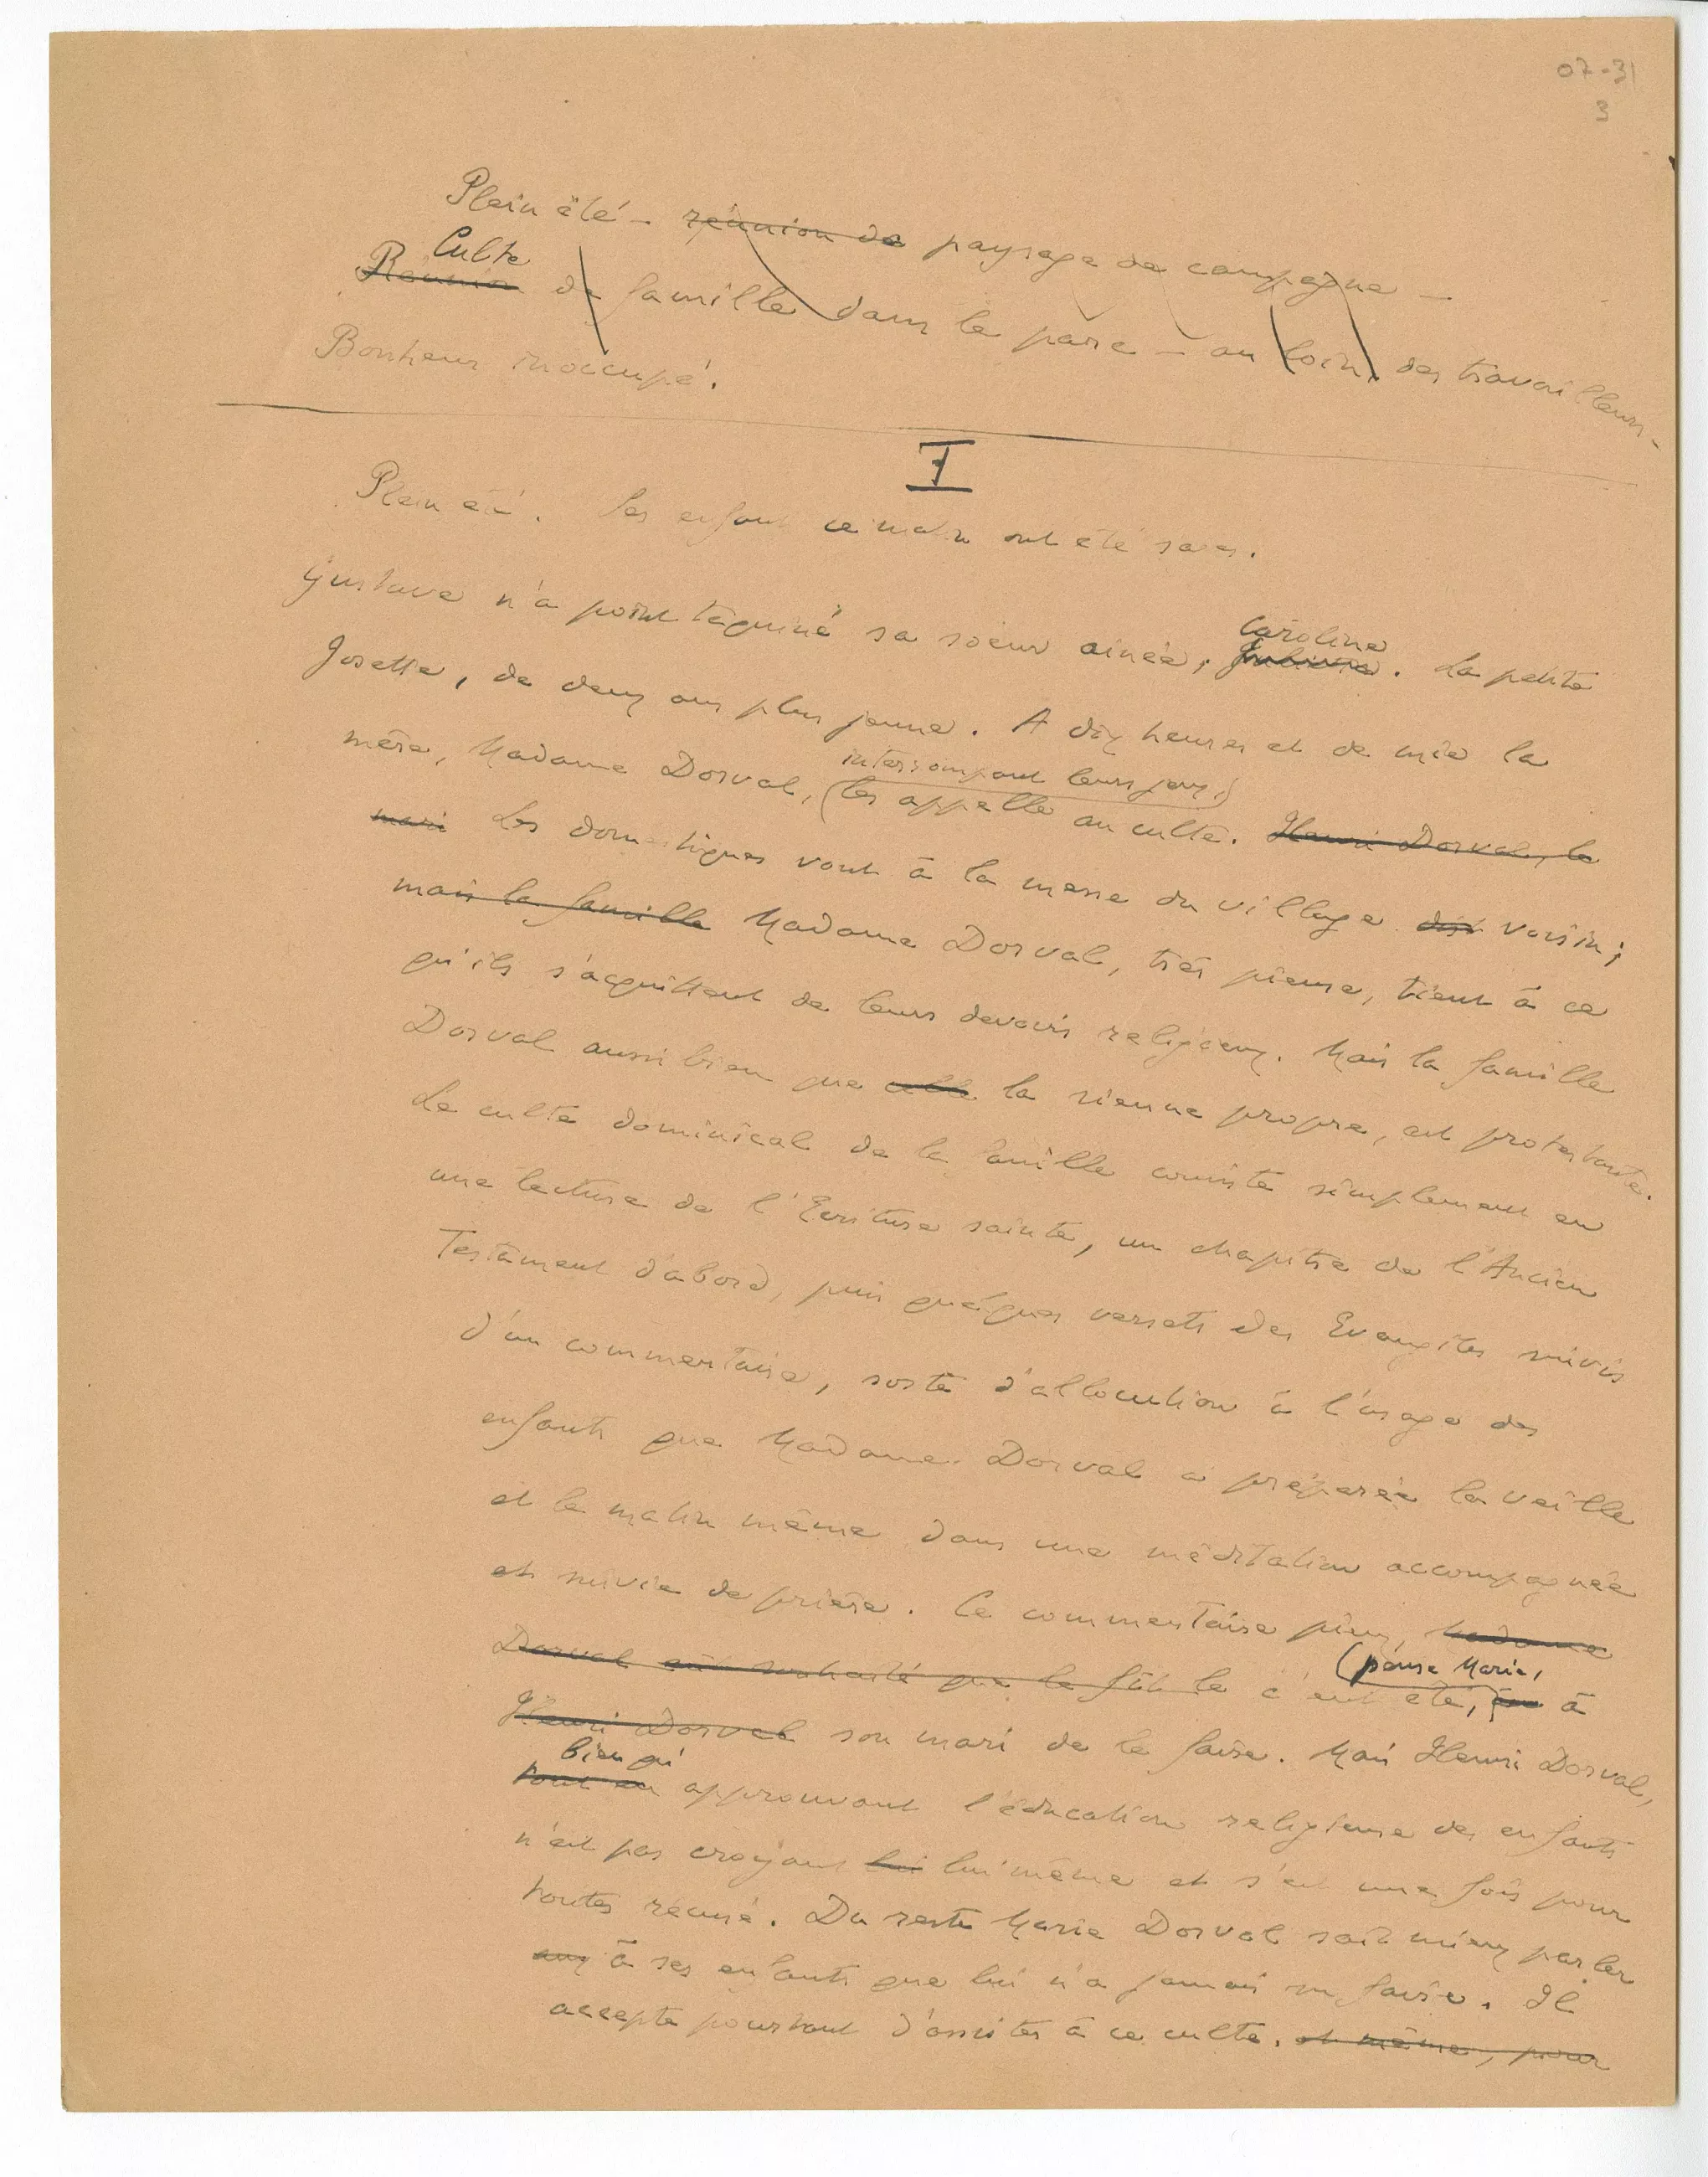 07-31
3
Plein été - réunion de paysage de campagne -
Culte
Réunion de famille dans le parc - au loin, des travailleurs -
Bonheur inoccupé.
I
Plein été. Les enfants ce matin ont été sages.
Gustave n'a point taquiné sa soeur ainée, Caroline. La petite
Josette, de deux ans plus jeune. A dix heures et demie la
interrompant leurs jeux,)
mère, Madame Dorval, (les appelle au culte. Henri Dorval, le
mari Les domestiques vont à la messe du village voisin;
mais la famille Madame Dorval, très pieuse, tient à ce
qu'ils s'acquittent de leurs devoirs religieux. Mais la famille
Dorval aussi bien que celle la sienne propre, est protestante.
Le culte dominical de la famille consiste simplement en
une lecture de l'Ecriture sainte, un chapitre de l'Ancien
Testament d'abord, puis quelques versets des Evangiles suivis
d'un commentaire, sorte d'allocution à l'usage des
enfants que Madame Dorval a préparée la veille
et le matin même dans une méditation accompagnée
et suivie de prière. Ce commentaire pieux, Madame
(pense Marie,
Dorval eût souhaité que ce fût le c'eut été, à
Henri Dorval son mari de le faire. Mais Henri Dorval,
bien qu'
tout en approuvant l'éducation religieuse des enfants
n'est pas croyant lui lui même et s'est une fois pour
toutes récusé. Du reste Marie Dorval sait mieux parler
aux à ses enfants que lui n'a jamais su faire. Il
accepte pourtant d'assister à ce culte. et même, pour